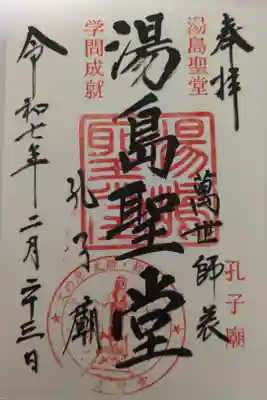 奉拝
湯島聖堂
萬世師表
孔子廟
湯島聖堂
孔子廟
学問成就
令和七年二月二十三日